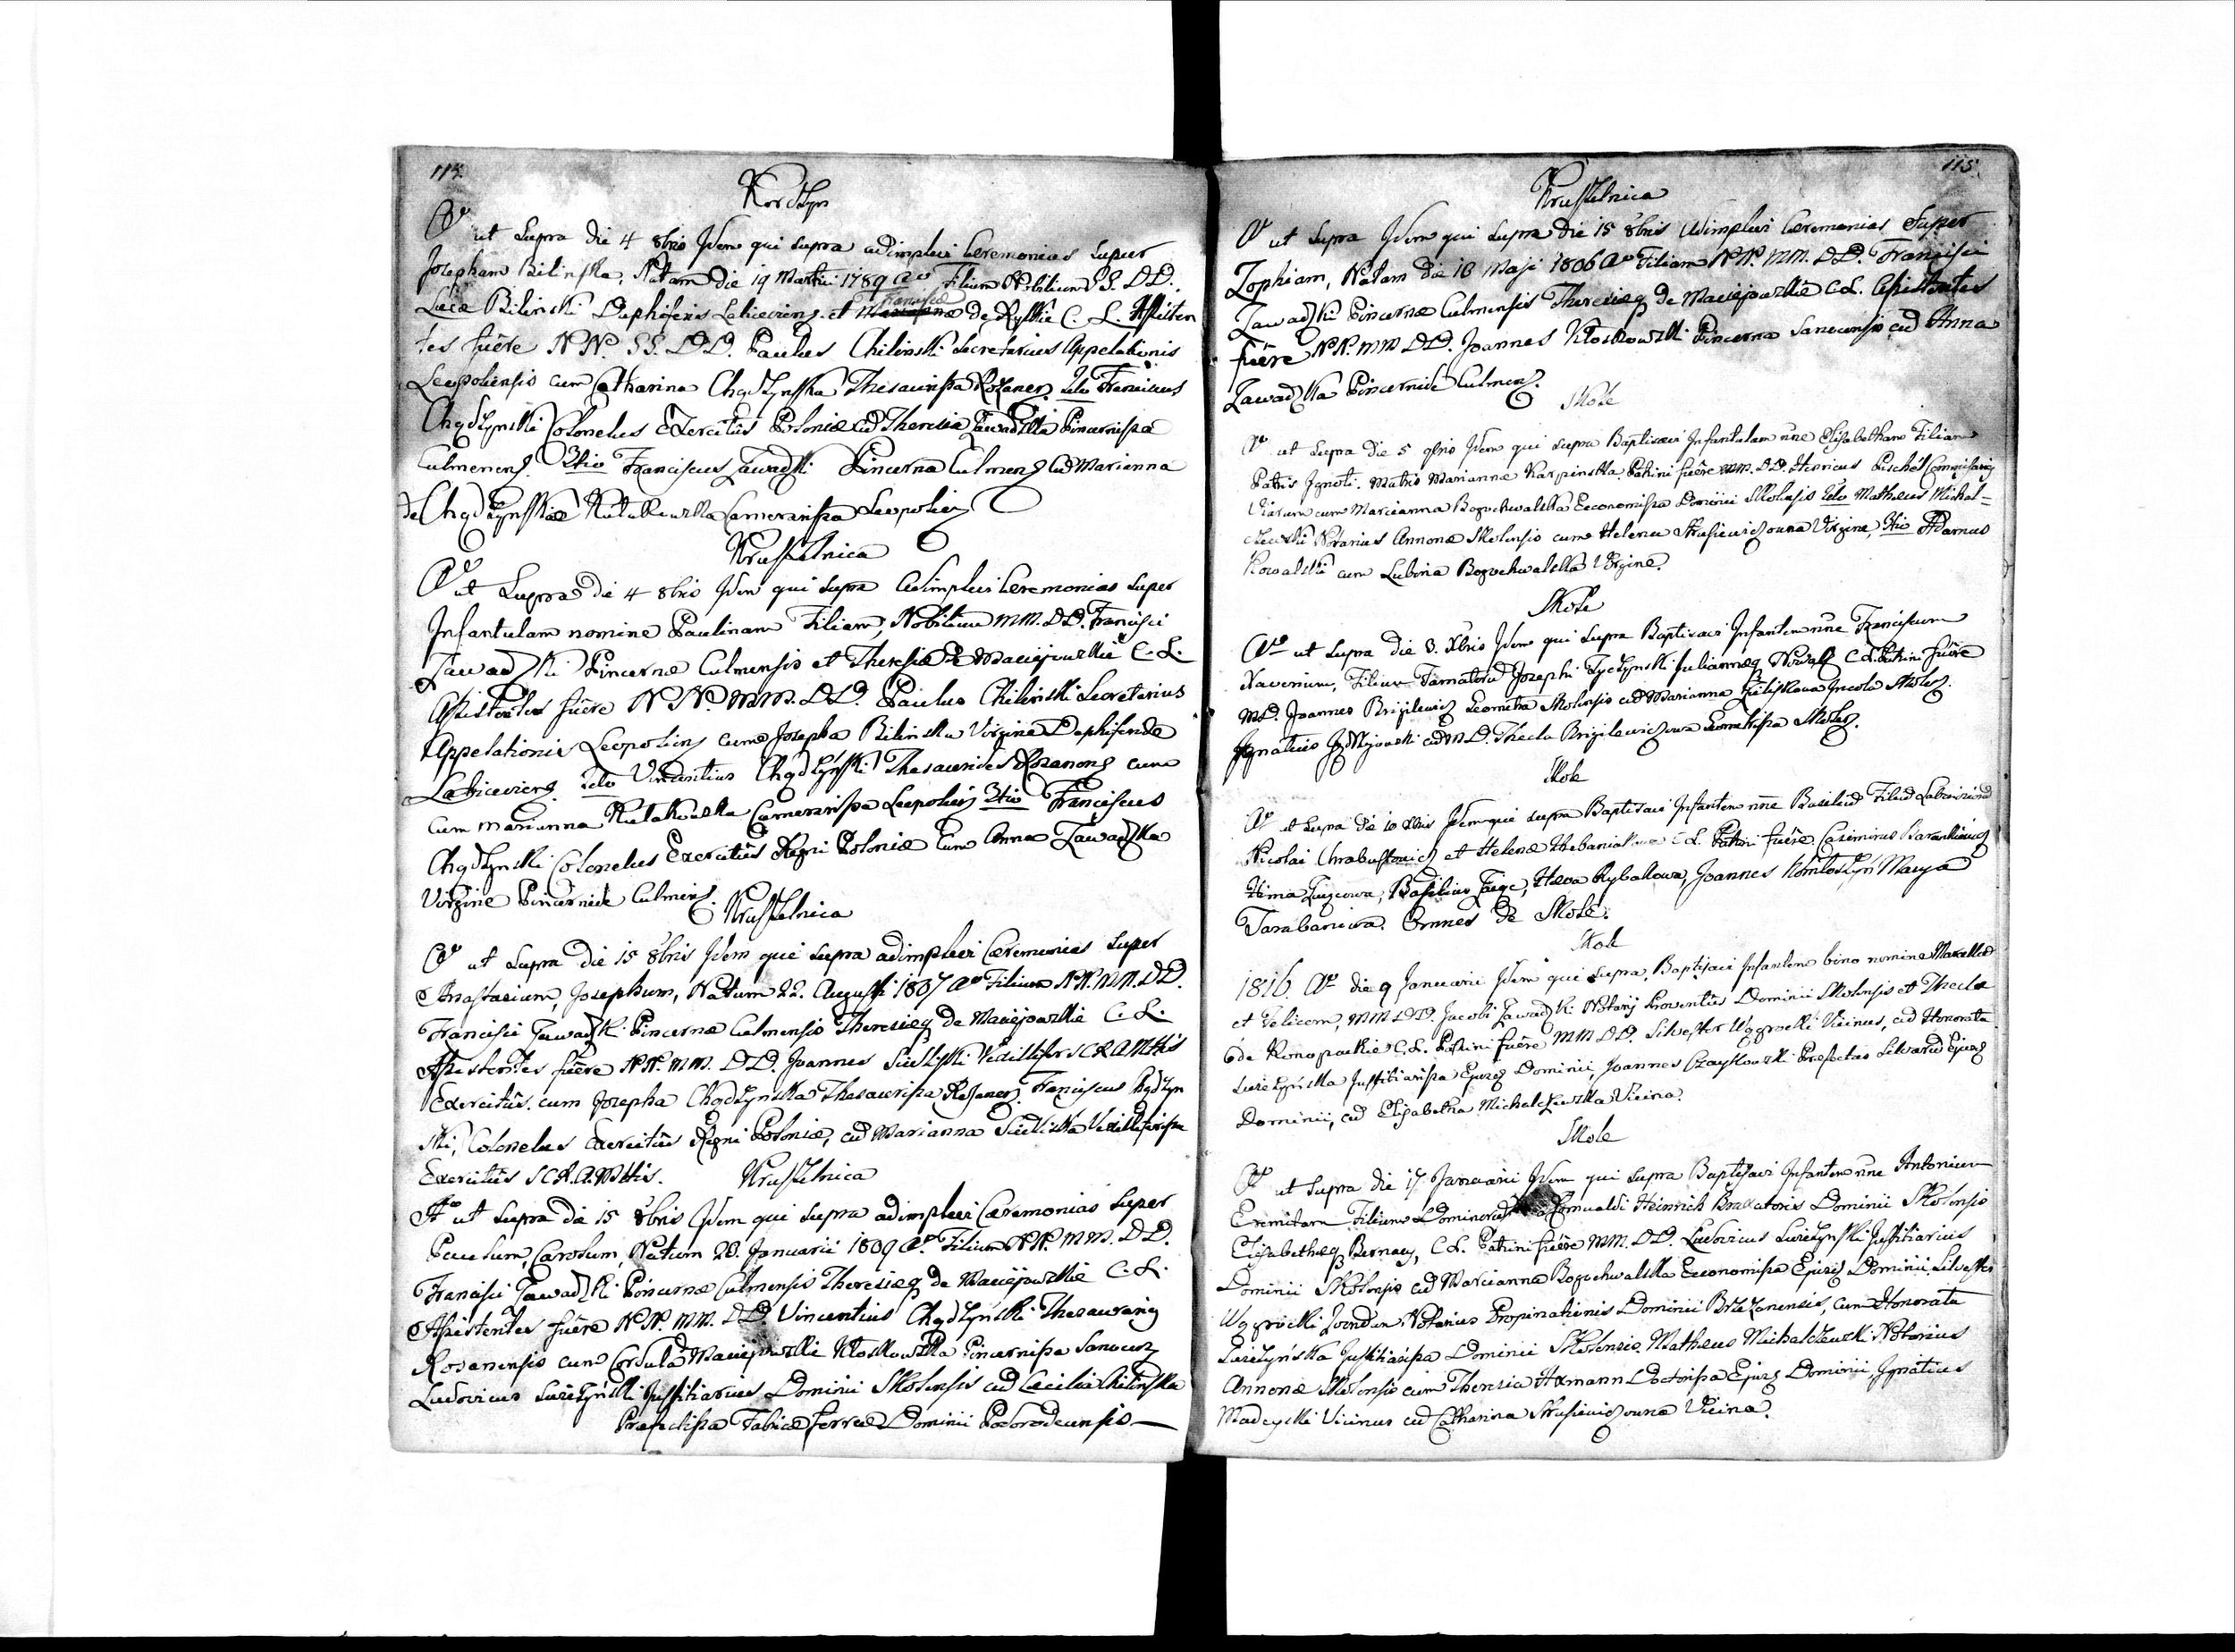 114.
Korczyn
Aº ut Supra die 4 8bris Idem qui supra adimplevi Ceremonias super
Josepham Bilinska, Natam die 19 Martii 1789 Aº Filiam Nobilium SS. DD.
Francisca
Lucæ Bilinski Daphiferis et Mariannæ de Ryłłkie C. L. Assisten
tes fuêre NN. SS. DD. Paulus Chilinski Secretarius Appelationis
Leopoliensis cum Catharina Chądzynska Thesaurissa Rożanen. 2do Franciscus
Chądzynski Colonelus Exercitûs Poloniæ cũ Theresia Zawadzka Pincernissa
Culmenens. 3tio Franciscus Zawadzki Pincerna Culmens cũ Marianna
de Chądzynskie Kulakowska Camerarissa Leopolien
Kruszelnica
Aº ut Supra die 4 8bris Idem qui supra Adimplevi Ceremonias super
Infantulam nomine Paulinam Filiam, Nobilium MM. DD. Francisci
Zawadzki Pincernæ Culmensis et Theresiæ de Maciejowskie C. L.
Assistentes fuêre NN. MM. DD. Paulus Chilinski Secretarius
Appelationis Leopoliens cum Josepha Bilinska Virgine Daphiferide
2do Vincentius Chądzynski Thesaurides Rozanens cum
cum Marianna Kulakowska Camerarissa Leopolien 3tio Franciscus
Chądzynski Colonelus Exercitûs Regni Poloniæ cum Anna Zawadzka
Virgine Pincernide Culmens.
Kruszelnica
Aº ut Supra die 15 8bris Idem qui supra adimplevi Cæremonias super
Anastasium, Josephum, Natum 22. Augusti 1807 Aº Filium NN. MM. DD.
Francisci Zawadzki Pincernæ Culmensis Theresieq de Maciejowskie C. L.
Assistentes fuêre NN. MM. DD. Joannes Sieliski Vexillifer SCRAMttis
Exercitûs. cum Josepha Chądzynska Thesaurissa Rożanens. Franciscus Chądzyn
ski, Colonelus Exercitûs Regni Poloniæ, cũ Marianna Vexilliferissa
Exercitûs SCR.A.Mttis.
Kruszelnica
Aº ut Supra die 15 8bris Idem qui supra adimplevi Cæremonias super
Paulum, Carolum, Natum 28. Januarii 1809 Aº. Filium NN. MM. DD.
Francisci Zawadzki Pincernæ Culmensis Theresieq de Maciejowskie C. L.
Assistentes fuêre NN. MM. DD. Vincentius Chądzynski Thesaurarius
Rosanensis cum Cordula Maciejowskie Kłoskowska Pincernissa Sanocens
Ludovicus Surezynski Justitiarius Dominii Skolensis cũ Cæcilia Chilinska
Præfectissa Fabricæ Ferreæ Dominii Podorodcensis
115.
Kruszelnica
Aº ut Supra Idem qui supra die 15 8bris Adimplevi Ceremonias super
Zophiam, Natam die 18 Maji 1806 Aº Filiam NN. MM. DD. Francisci
Zawadzki Pincernæ Culmensis Theresieq de Maciejowskie C. L. Assistentes
fuêre NN. MM DD. Joannes Kłoskowski Pincerna Sanocensis cũ Anna
Zawadzka Pincernide Culmens.
Skole
Aº ut Supra die 5 9bris Idem qui supra Baptisavi Infantulam nñe Elisabetham Filiam
Patris Ignoti. Matris Mariannæ Karpinska. Patrini fuêre MM. DD. Henricus Pischel Commissarius
Viarum cum Marcianna Boguchwalska Eeconomissa Dominii Skolensis 2do Matheus Michal=
czewski Notarius Annonæ Skolensis cum Helena Strusiewiczowna Virgine, 3tio Adamus
Kowalski cum Lubina Boguchwalska Virgine.
Skole
Aº ut supra die 3. Xbris Idem qui supra Baptisavi Infantem nñe Franciscum
Xaverium, Filium Famatorũ Josephi Tyczynski Juliannæq C. L. Patrini fuêre
MD. Joannes Brigilewicz Geometra Skolensis cũ Marianna Incola Skolens.
Ignatius cũ MD. Thecla Brigilewiczowa Geometrissa Skolens.
Skole
Aº ut Supra die 10 Xbris Idem qui supra Baptisavi Infantem nñe Basiliũ Filiũ Laboriosorũ
Nicolai et Helenæ C. L. Patrini fuêre Casimirus
Basilius Hawa Rybakowa, Joannes Marya
Tarabaniwa. Omnes de Skole.
Skole
1816. Aº die 9 Januarii Idem qui supra, Baptisavi Infantem bino nomine Marcellũ
et Felicem, MM DD. Jacobi Zawadzki Notarij Proventûs Dominii Skolensis et Theclæ
de Konopackie C. L. Patrini fuêre MM DD. Silvester Węgrocki Vicinus, cũ Honorata
Surezynska Justitiarissa Ejusq Dominii, Joannes Czaykowski Præfectus Silvarũ Ejusq
Dominii, cũ Elisabetha Michalczewska Vicina.
Skole
Aº ut Supra die 17 Januarii Idem qui supra Baptisavi Infantem nñe Antonium
Eremitam Filium Dominorũ Romualdi Heinrich Braxatoris Dominii Skolensis
Elisabethæq Bernacy, C. L. Patrini fuêre MM. DD. Ludovicus Surezynski Justitiarius
Dominii Skolensis cũ Marcianna Boguchwalska Eeconomissa Ejusq Dominii. Silvester
Węgrocki Notarius Propinationis Dominii Brzezanensis, cum Honorata
Surezynska Justitiarissa Dominii Skolensis. Matheus Michalczewski Notarius
Annonæ Skolensis cum Theresia Axmann Doctorissa Ejusq Dominii, Ignatius
Madeyski Vicinus cũ Catharina Strusiewiczowna Vicina.